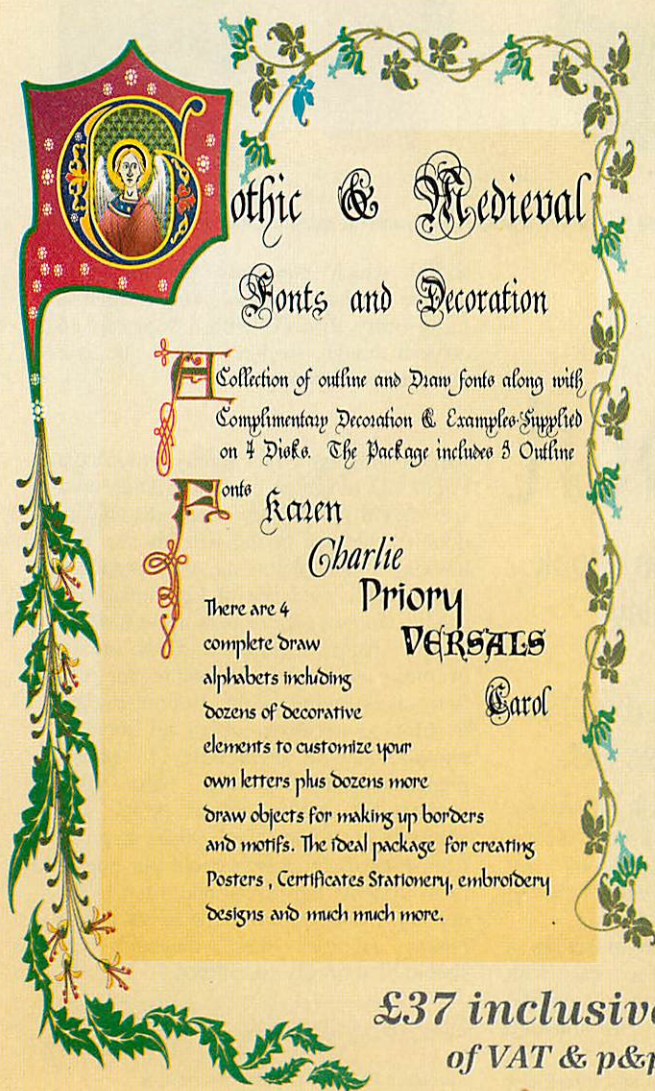 Gothic & Medieval
Fonts and Decoration
A Collection of outline and Draw fonts along with
Complimentary Decoration & Examples. Supplied
on 4 Disks. The Package includes 5 Outline
Fonts
Karen
Charlie
Priory
VERSALS
Carol
There are 4
complete draw
alphabets including
dozens of decorative
elements to customize your
own letters plus dozens more
draw objects for making up borders
and motifs. The ideal package for creating
Posters , Certificates Stationery, embroidery
designs and much much more.
£37 inclusive
of VAT & p&p